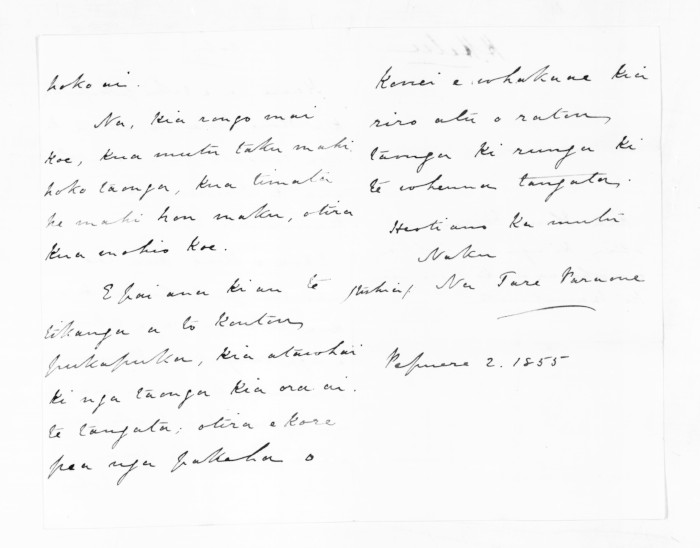 hoko ai.
Na, kia rongo mai
koe, kua mutu taku mahi
hoko taonga, kua timata
he mahi hou maku, otira
kua mohio koe.
E pai ana ki au te
tikanga a to koutou
pukapuka, kia atawhai
ki nga taonga kia ora ai
te tangata; otira e kore
pea nga pakeha o
Konei e whakaae kia
riro atu o ratou
taonga ki runga ki
te whenua tangata.
Heoti ano ka mutu
Naku
Na Tare Paraone
Pepuere 2. 1855